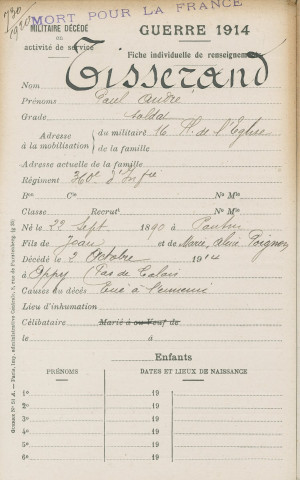 730/1920
MORT POUR LA FRANCE
MILITAIRE DÉCÉDÉ
en
activité de service
GUERRE 1914
Fiche individuelle de renseignements
Nom Tisserand
Prénoms Paul André
Grade Soldat
Adresse à la mobilisation { du militaire 16 R. de l'Eglise
de la famille
Adresse actuelle de la famille
Régiment 360e d'Infie
Bon Cie No Mle
Classe Recrut No Mle
Né le 22 Sept 1890 à Pantin
Fils de Jean et de Marie, Poignon
Décédé le 2 Octobre 1914
à Oppy (Pas de Calais
Causes du décès Tué à l'ennemi
Lieu d'inhumation
Célibataire Marié à ou Veuf de
le à
Enfants
PRÉNOMS DATES ET LIEUX DE NAISSANCE
1o 19 à
2o 19 à
3o 19 à
4o 19 à
5o 19 à
6o 19 à